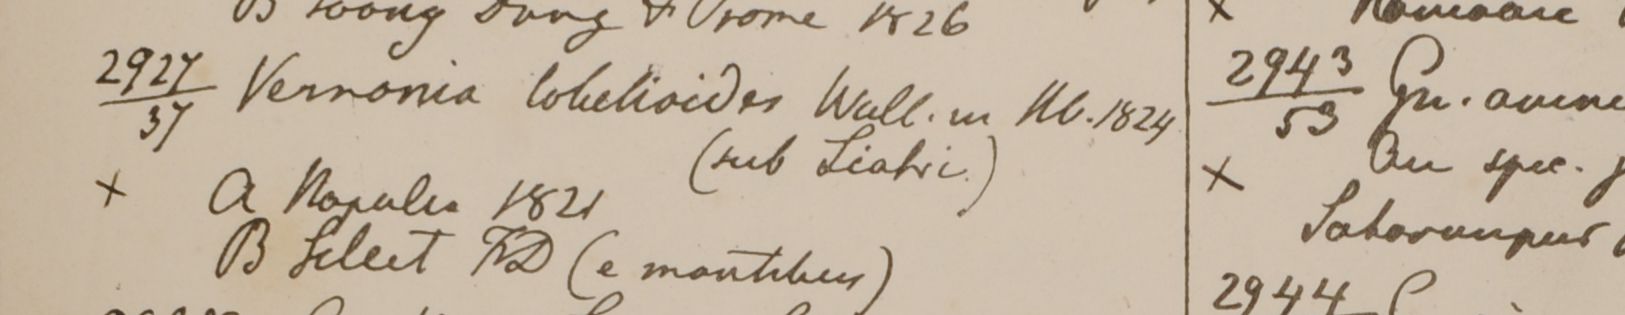 B Toong Dong & Prome 1826
2927/37 Vernonia lobelioides Wall. in Hb. 1824
(sub Liatri.)
+ A Napalia 1821
B Sillet FD (e montibus)
2943/53
×
An spec.
Saharunpur
2944